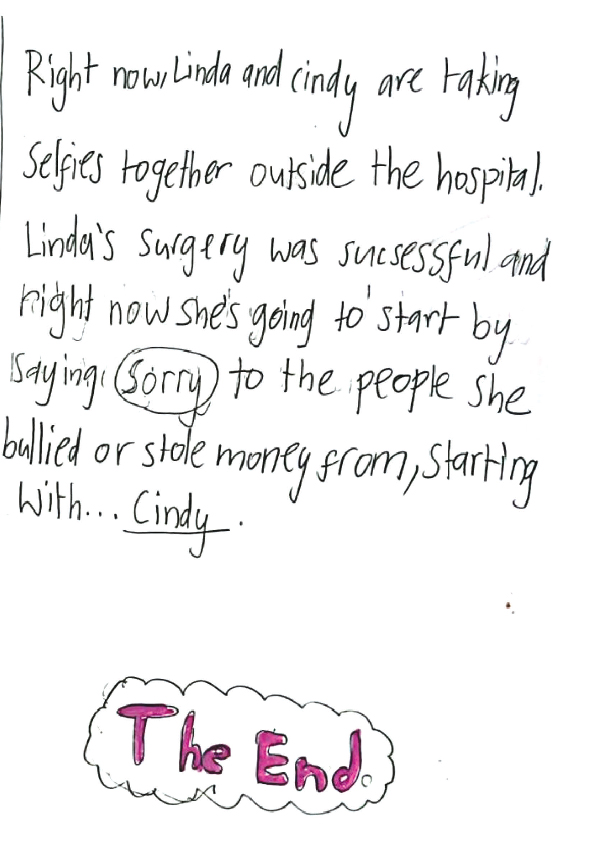 Right now, Linda and cindy are taking
Selfies together outside the hospital.
Linda's surgery was sucsessful and
right now she's going to start by
saying sorry to the people she
bullied or stole money from, starting
with... Cindy.
The End.